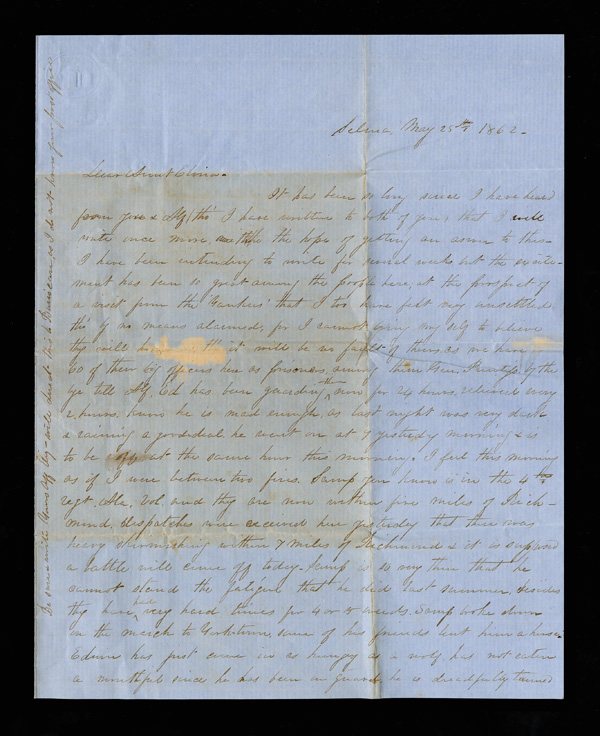 Selma, May 25th 1862.
Dear Aunt Elvira.
It has been so long since I have heard
from you & Alf, (tho' I have written to both of you) that I will
write once more, with the hope of getting an answer to this.
I have been intending to write for several weeks but the excite-
ment has been so great among the people here, at the prospect of
a visit from the Yankees that I too have felt very unsettled,
tho' by no means alarmed, for I cannot bring my self to believe
they will it will be no fault of theirs, as we have
60 of their officers here as prisoners, among them Gen. Prentiss, by the
bye tell Alf, Ed has been guarding them now for 24 hours, relieved every
2 hours. Know he is mad enough, as last night was very dark
& raining a good deal, he went on at 7 yesterday morning & is
to be off at the same hour this morning. I feel this morning
as if I were between two fires. Samp you know is in the 4
regt. Ala. Vol. and they are now within five miles of Rich-
mond, dispatches were received here yesterday that there was
heavy skirmishing within 7 miles of Richmond & it is supposed
a battle will come off today. Samp is so very thin that he
cannot stand the fatigue that he did last summer, besides
they have had very hard times for 4 or 5 weeks. Samp broke down
on the march to Yorktown, some of his friends lent him a horse.
Edwin has just come in as hungry as a wolf, has not eaten
a mouthful since he has been on guard, he is dreadfully tanned
write will direct this to as I do not know your post office